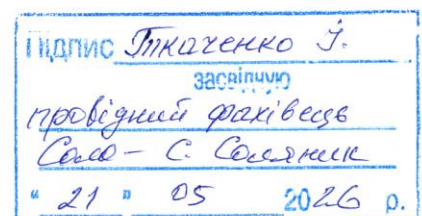 ПІДПИС Ткаченко І.
засвідчую
провідний фахівець
Соло- С. Соляник
"21" 05 2026 р.